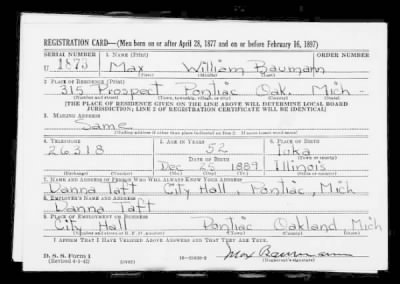 REGISTRATION CARD—(Men born on or after April 28, 1877 and on or before February 16, 1897)
SERIAL NUMBER 1. NAME (Print) ORDER NUMBER
U 1873 Max William Baumann
(First) (Middle) (Last)
2. PLACE OF RESIDENCE (Print)
315 Prospect Pontiac Oak. Mich -
(Number and street) (Town, township, village, or city) (County) (State)
[THE PLACE OF RESIDENCE GIVEN ON THE LINE ABOVE WILL DETERMINE LOCAL BOARD
JURISDICTION; LINE 2 OF REGISTRATION CERTIFICATE WILL BE IDENTICAL]
3. MAILING ADDRESS
Same
[Mailing address if other than place indicated on line 2. If same insert word same]
4. TELEPHONE 5. AGE IN YEARS 6. PLACE OF BIRTH
26318 52 Iuka
DATE OF BIRTH (Town or county)
Dec 25 1889 Illinois
(Exchange) (Number) (Mo.) (Day) (Yr.) (State or country)
7. NAME AND ADDRESS OF PERSON WHO WILL ALWAYS KNOW YOUR ADDRESS
Danna Taft City Hall, Pontiac, Mich
8. EMPLOYER'S NAME AND ADDRESS
Danna Taft
9. PLACE OF EMPLOYMENT OR BUSINESS
City Hall Pontiac Oakland Mich
(Number and street or R. F. D. number) (Town) (County) (State)
I AFFIRM THAT I HAVE VERIFIED ABOVE ANSWERS AND THAT THEY ARE TRUE.
D. S. S. Form 1
(Revised 4-1-42) (over) Max Baumann
(Registrant's signature)